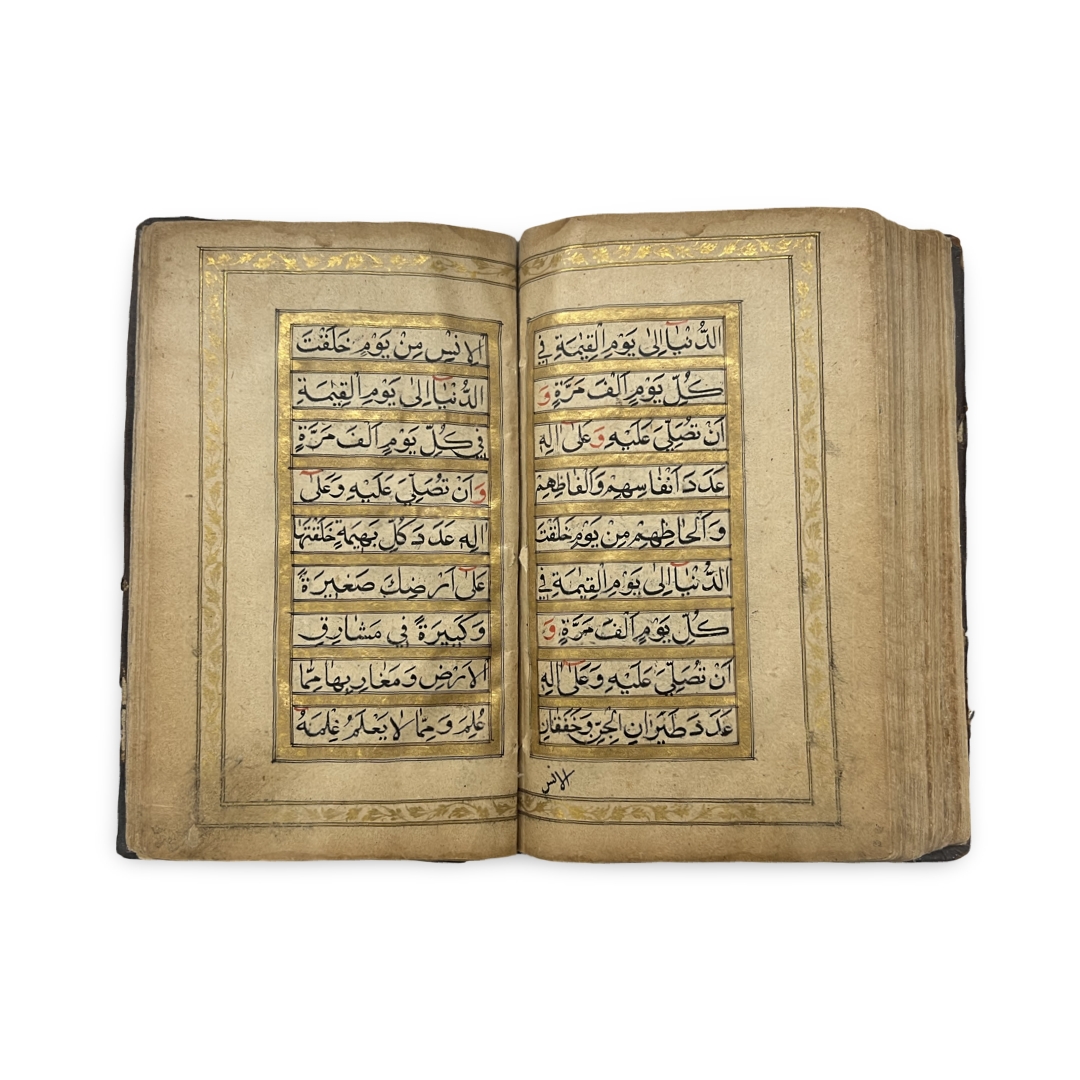 الدُّنْيَآ اِلٰى يَوْمِ الْقِيٰمَةِ فِي
كُلِّ يَوْمٍ اَلْفَ مَرَّةٍ وَ
اَنْ تُصَلِّيَ عَلَيْهِ وَعَلٰٓى اٰلِهٖ
عَدَدَ اَنْفَاسِهِمْ وَاَلْفَاظِهِمْ
وَاَلْحَاظِهِمْ مِنْ يَوْمِ خَلَقْتَ
الدُّنْيَآ اِلٰى يَوْمِ الْقِيٰمَةِ فِي
كُلِّ يَوْمٍ اَلْفَ مَرَّةٍ وَ
اَنْ تُصَلِّيَ عَلَيْهِ وَعَلٰٓى اٰلِهٖ
عَدَدَ طَيَرَانِ الْجِنِّ وَخَفَقَانِ
الانس
الْاِنْسِ مِنْ يَوْمِ خَلَقْتَ
الدُّنْيَآ اِلٰى يَوْمِ الْقِيٰمَةِ
فِي كُلِّ يَوْمٍ اَلْفَ مَرَّةٍ
وَ اَنْ تُصَلِّيَ عَلَيْهِ وَعَلٰٓى
اٰلِهٖ عَدَدَ كُلِّ بَهِيْمَةٍ خَلَقْتَهَا
عَلٰٓى اَرْضِكَ صَغِيْرَةً
وَكَبِيْرَةً فِي مَشَارِقِ
الْاَرْضِ وَمَغَارِبِهَا مِمَّا
عُلِمَ وَمِمَّا لَا يَعْلَمُ عِلْمَهٗٓ